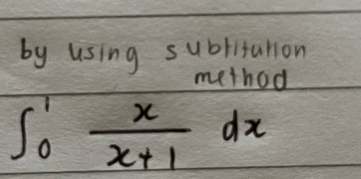 by using subtitution
method
∫₀¹ x/(x+1) dx